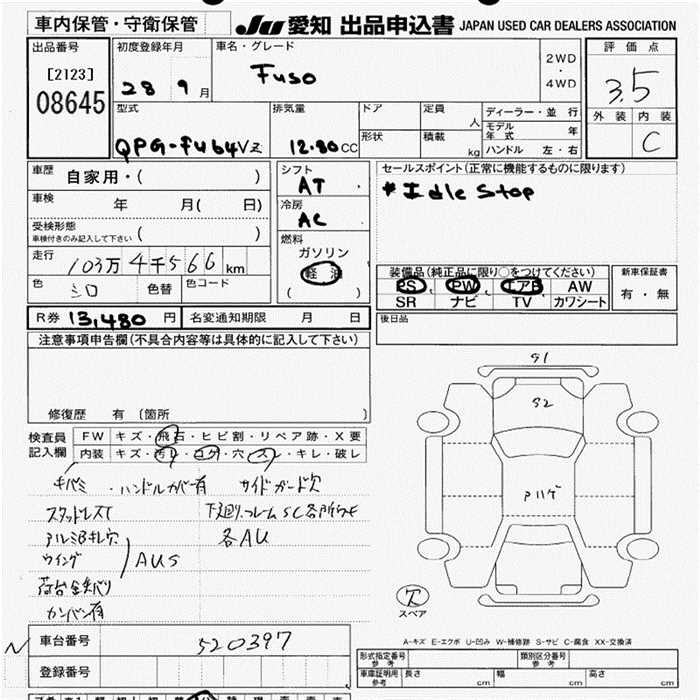 車内保管・守衛保管
JU 愛知 出品申込書 JAPAN USED CAR DEALERS ASSOCIATION
出品番号
[2123]
08645
初度登録年月
28 9 月
車名・グレード
Fuso
2WD
・
4WD
評価点
3.5
外装 内装
C
型式
QPG-FU64VZ
排気量
12.80 CC
ドア
形状
定員
人
積載
kg
ディーラー・並行
モデル年式 年
ハンドル 左・右
車歴
自家用・( )
車検
年 月( 日)
受検形態
車検付きのみ記入して下さい ( )
走行
103万4千566 km
色
シロ
色替
色コード
シフト
AT
冷房
AC
燃料
ガソリン
軽油
( )
セールスポイント(正常に機能するものに限ります)
*Idle Stop
装備品(純正品に限り○をつけてください)
PS PW エアB AW
SR ナビ TV カワシート
新車保証書
有・無
後日品
R券 13,480 円
名変通知期限 月 日
注意事項申告欄(不具合内容等は具体的に記入して下さい)
修復歴 有 〔箇所 〕
検査員
記入欄
FW キズ・飛石・ヒビ割・リペア跡・X要
内装 キズ・汚レ・コゲ・穴・スレ・キレ・破レ
キバミ ・ハンドルカバ有 サイドガード欠
スタッドレスT 下廻り、フレームSC各所
アルミBキレ穴 各AU
ウイング AUS
荷台
カンバン有
S1
S2
欠
スペア
A-キズ E-エクボ U-凹み W-補修跡 S-サビ C-腐食 XX-交換済
N
車台番号
520397
登録番号
形式指定番号
参考
類別区分番号
参考
車庫証明用
参考
長さ cm
幅 cm
高さ cm